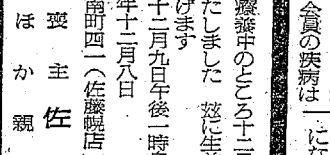 会員の疾病は
にな
療養中のところ十二
たしました 茲に生前
げます
十二月九日午後一時自
年十二月八日
南町四一(佐藤幌店
喪主 佐
ほか 親